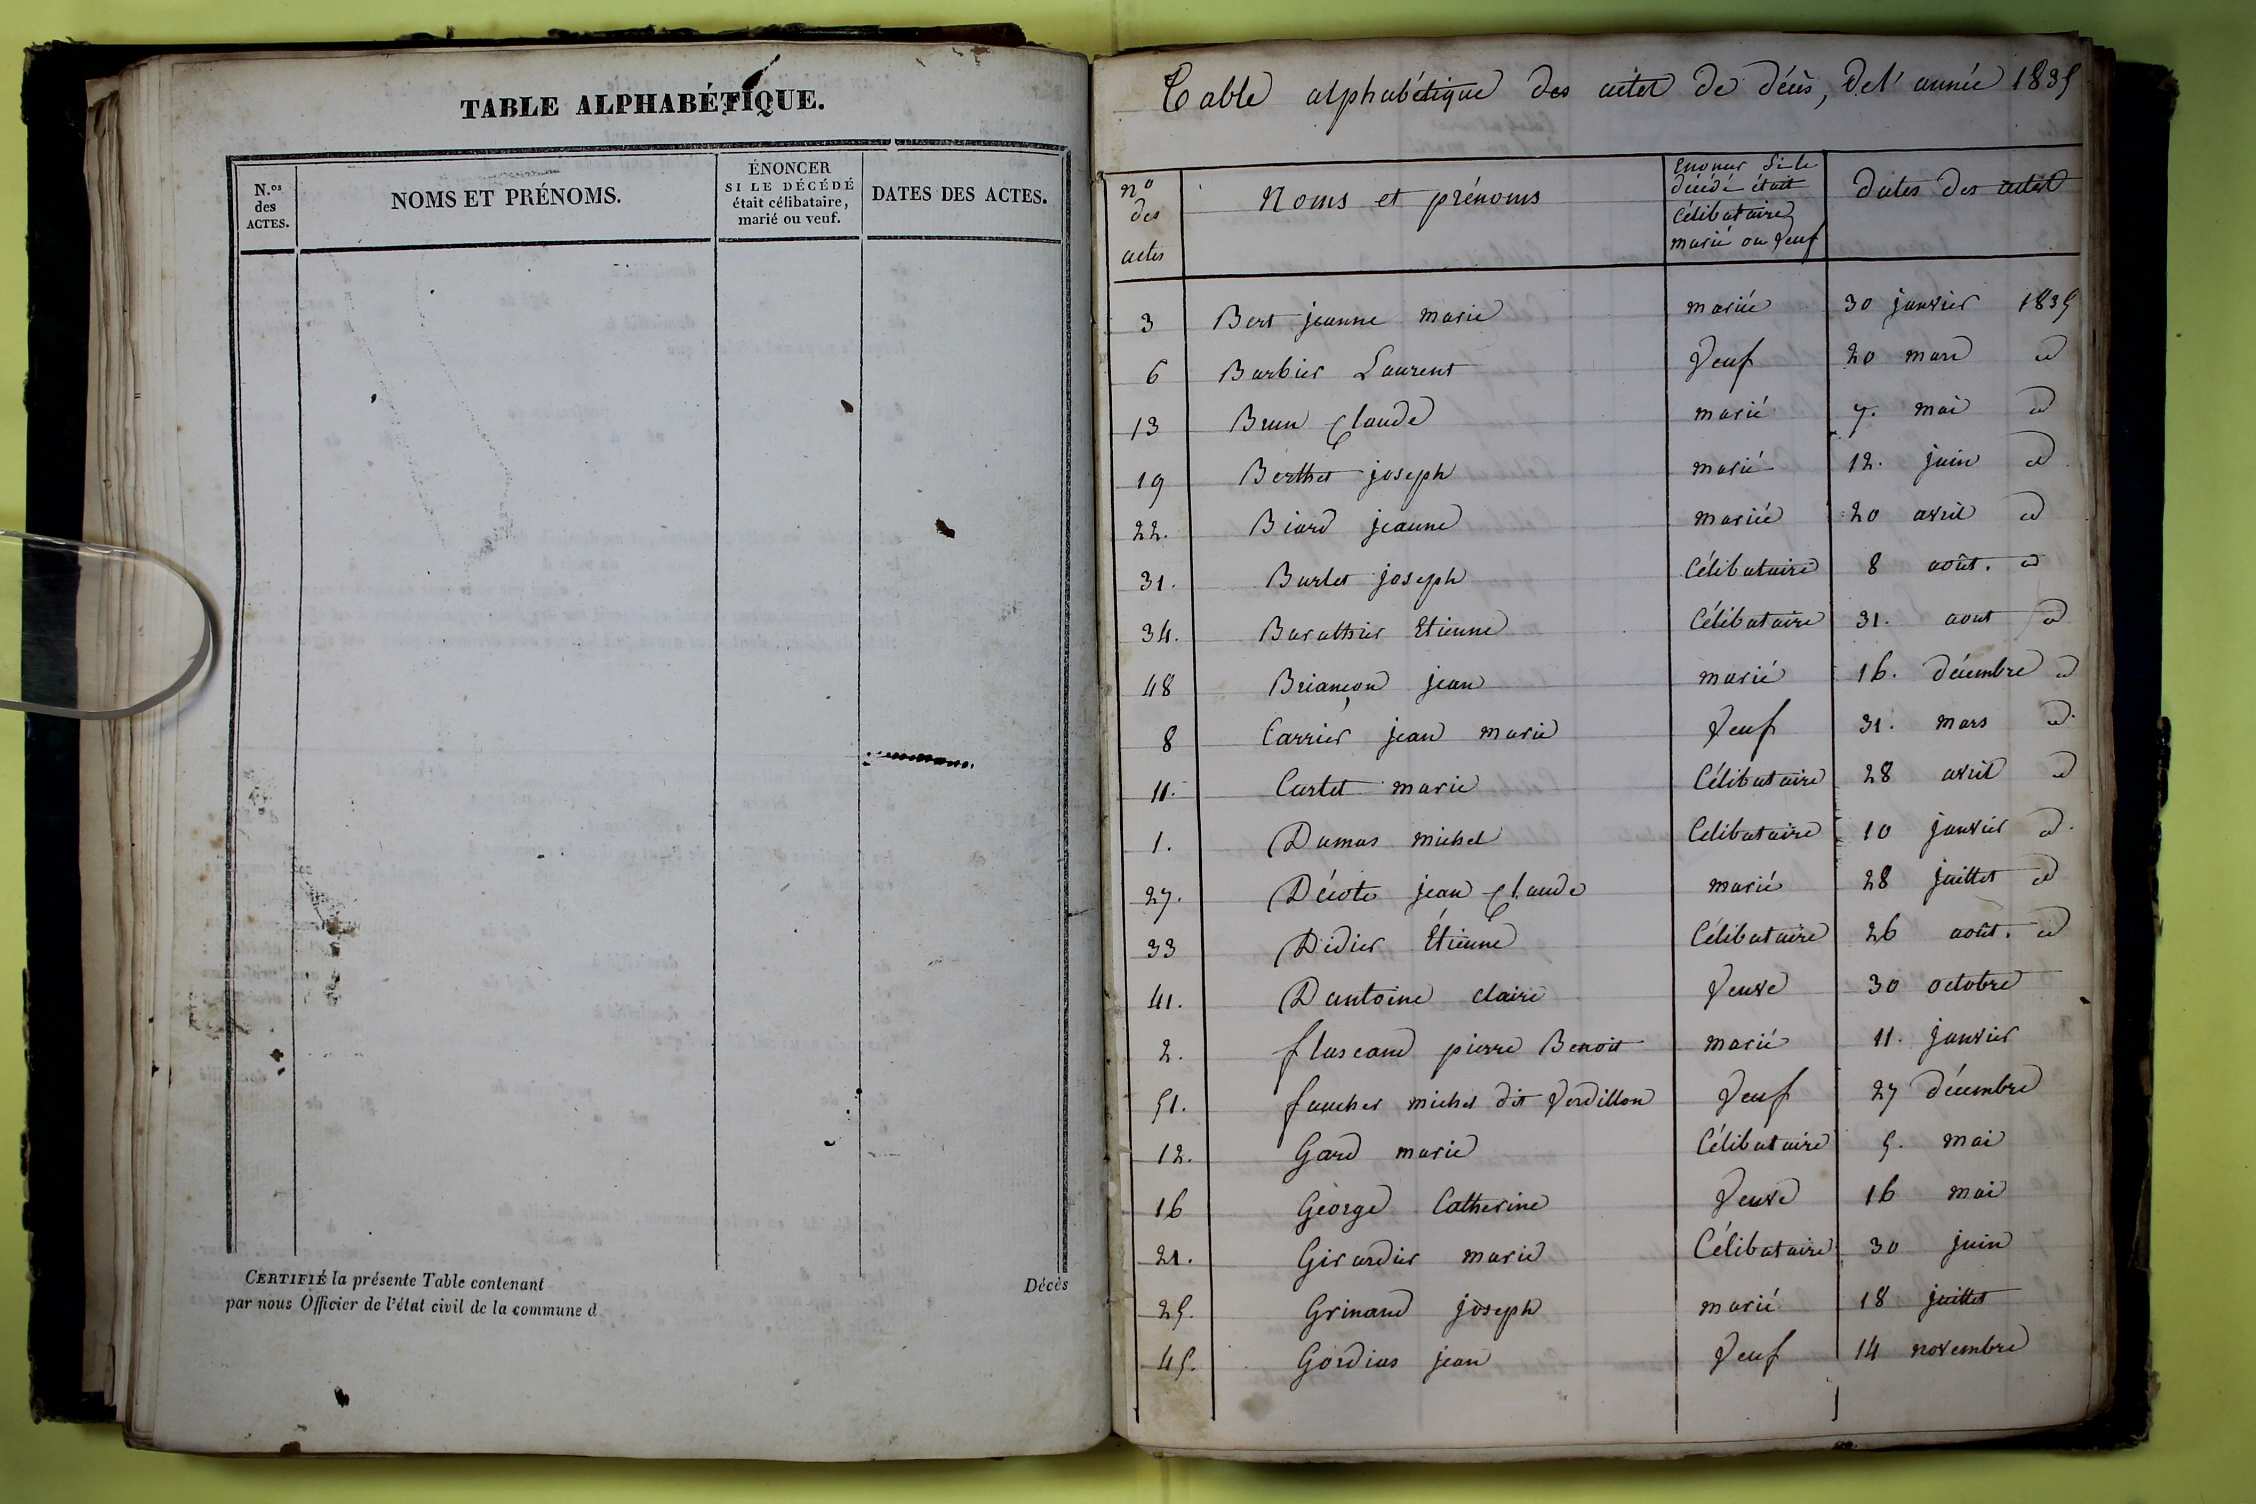 TABLE ALPHABÉTIQUE.
N.os
des
ACTES.
NOMS ET PRÉNOMS.
ÉNONCER
SI LE DÉCÉDÉ
était célibataire,
marié ou veuf.
DATES DES ACTES.
CERTIFIÉ la présente Table contenant Décès
par nous Officier de l'état civil de la commune d
Table alphabétique des actes de décès, de l'année 1835
no
des
actes
Noms et prénoms
Enoncer Si le
décédé était
célibataire
marié ou veuf
dates des actes
3 Bert jeanne marie mariée 30 janvier 1835
6 Barbier Laurent Veuf 20 mars id
13 Brun Claude marié 7. mai id
19 Berthet joseph marié 12. juin id
22. Biard jeanne mariée 20 avril id
31. Burlet joseph Célibataire 8 août. id
34. Barathier Etienne Célibataire 31. aout id
48 Briançon jean marié 16. décembre id
8 Carrier jean marie Veuf 31. mars id.
11. Curtet marie Célibataire 28 avril id
1. Dumas michel Celibataire 10 janvier id.
27. Décote jean Claude marié 28 juillet id
33 Didier Étienne Célibataire 26 août. id
41. Dantoine claire Veuve 30 octobre
2. pierre Benoit marié 11. janvier
51. faucher michel dit Verdillon Veuf 27 décembre
12. Gard marie Célibataire 5. mai
16 George Catherine Veuve 16 mai
21. Girardier marie Célibataire 30 juin
25. Grinand joseph marié 18 juillet
45. Gordias jean Veuf 14 novembre